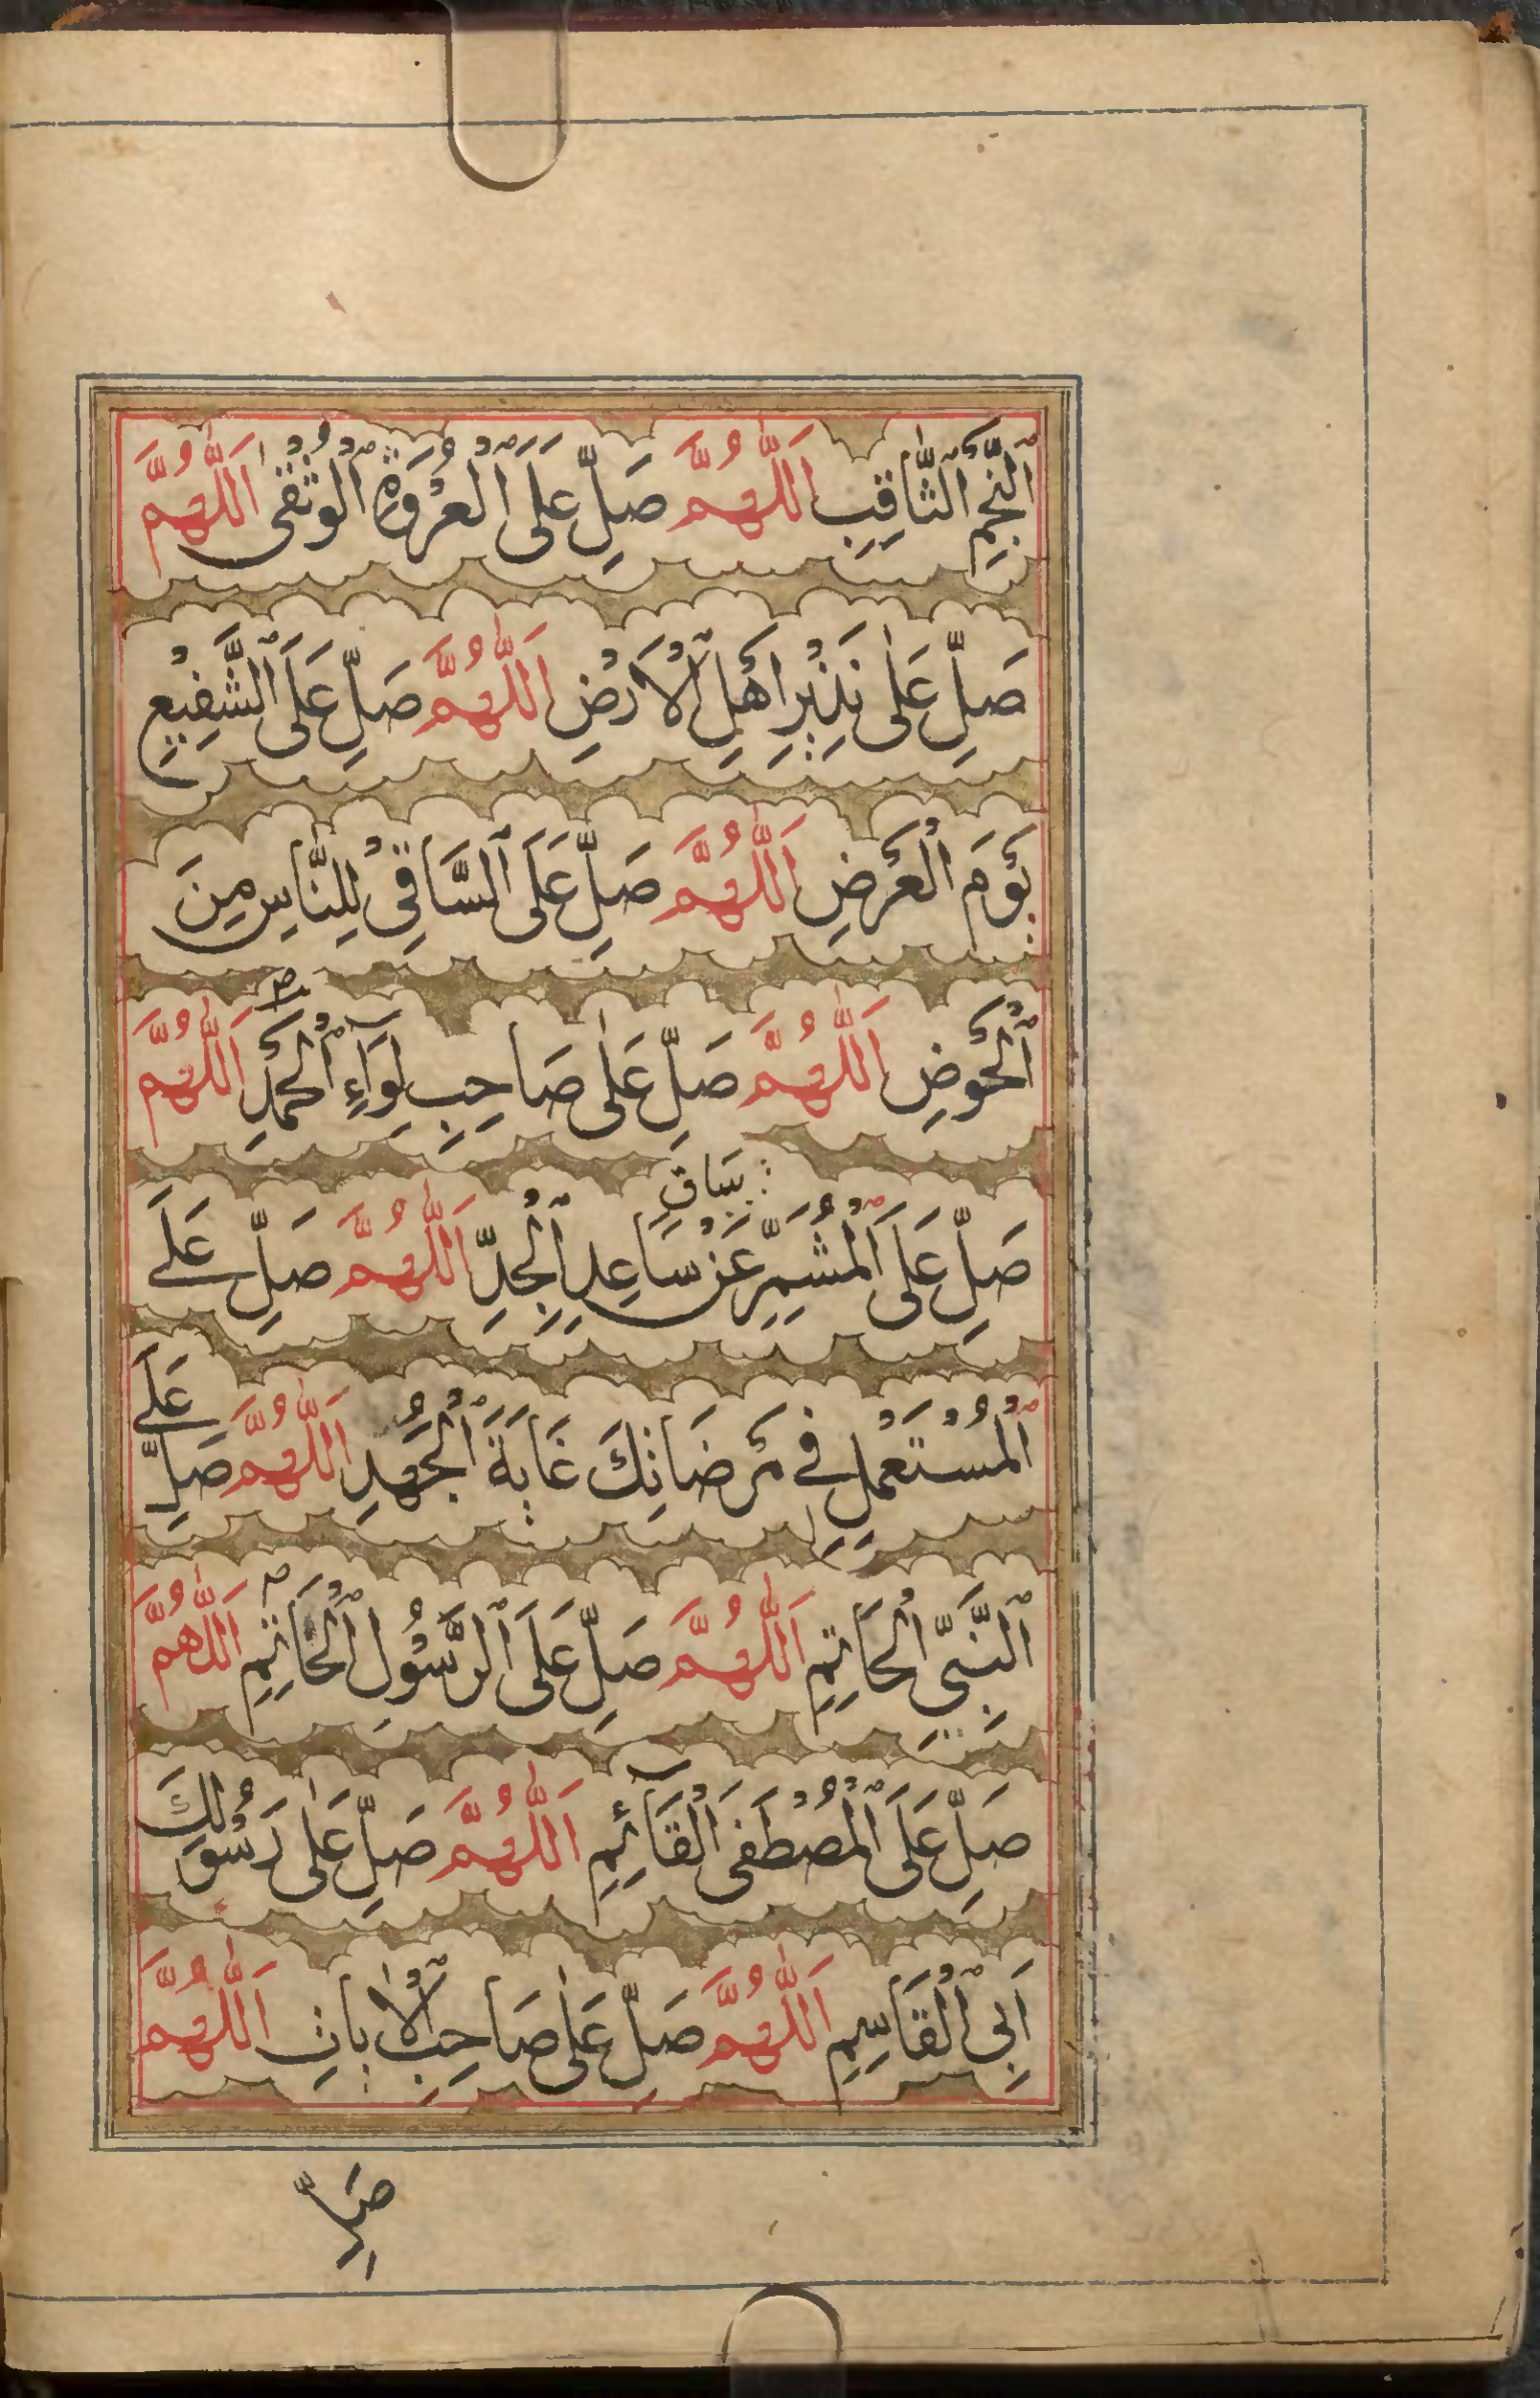 ٱلنَّجْمِ ٱلثَّاقِبِ اَللّٰهُمَّ صَلِّ عَلَى ٱلْعُرْوَةِ ٱلْوُثْقٰى اَللّٰهُمَّ
صَلِّ عَلٰى نَذِيْرِ اَهْلِ ٱلْاَرْضِ اَللّٰهُمَّ صَلِّ عَلَى ٱلشَّفِيْعِ
يَوْمَ ٱلْعَرْضِ اَللّٰهُمَّ صَلِّ عَلَى ٱلسَّاقِيْ لِلنَّاسِ مِنَ
ٱلْحَوْضِ اَللّٰهُمَّ صَلِّ عَلٰى صَاحِبِ لِوَآءِ ٱلْحَمْدِ اَللّٰهُمَّ
بِسَاقِ
صَلِّ عَلَى ٱلْمُشَمِّرِ عَنْ سَاعِدِ ٱلْجِدِّ اَللّٰهُمَّ صَلِّ عَلَى
ٱلْمُسْتَعْمِلِ فِي مَرْضَاتِكَ غَايَةَ ٱلْجُهْدِ اَللّٰهُمَّ صَلِّ عَلَى
ٱلنَّبِيِّ ٱلْخَاتِمِ اَللّٰهُمَّ صَلِّ عَلَى ٱلرَّسُوْلِ ٱلْخَاتِمِ اَللّٰهُمَّ
صَلِّ عَلَى ٱلْمُصْطَفَى ٱلْقَآئِمِ اَللّٰهُمَّ صَلِّ عَلٰى رَسُوْلِكَ
اَبِي ٱلْقَاسِمِ اَللّٰهُمَّ صَلِّ عَلٰى صَاحِبِ ٱلْاٰيَاتِ اَللّٰهُمَّ
صَلِّ